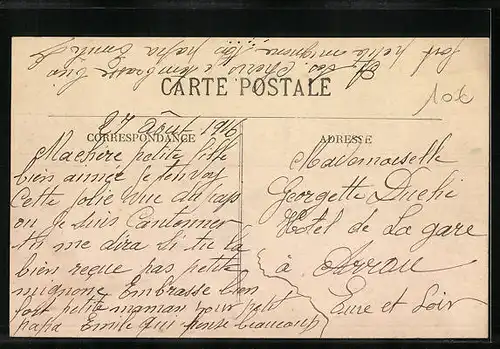 CARTE POSTALE
10c
27 Août 1916
CORRESPONDANCE
ADRESSE
Ma chère petite fille
bien aimée je t'envoy
Cette jolie vue du pays
ou je suis Cantonner
tu me dira si tu la
bien reçue pas petite
mignone Embrasse bien
fort petite maman pour petit
papa Emile qui pense beaucoup
Mademoiselle
Georgette
Hôtel de La gare
à
Eure et Loir
fort petite mignone ton papa Emile